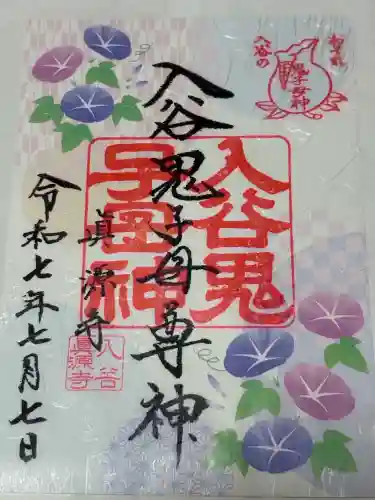 入谷鬼子母尊神
入谷鬼
子母神
眞源寺
入谷
眞源寺
令和七年七月七日
入谷の
鬼子母神